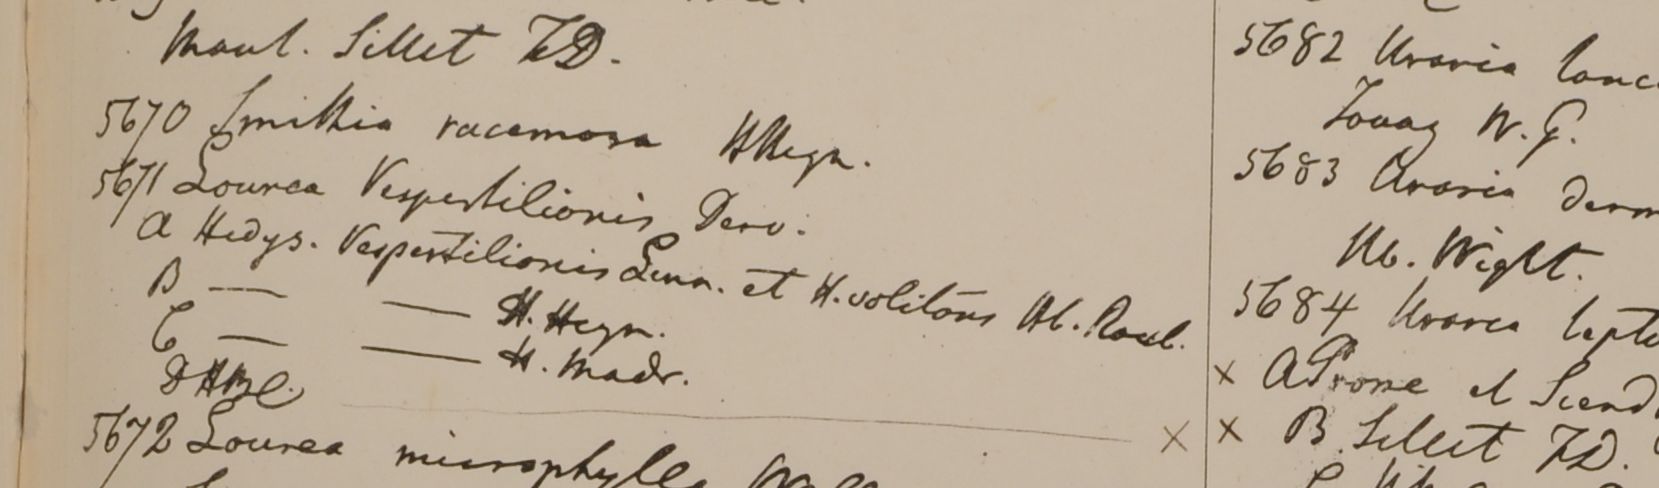 Maul. Sillet F.D.
5670 Smithia racemosa HHeyn.
5671 Lourea Vespertilionis Desv.
A Hedys. Vespertilionis Linn. et H. volitans Hb. Roxb.
B — — H. Heyn.
C — — H. Madr.
D HBC.
5672 Lourea microphylla Wall
5682 Uraria lanc
Tovag W.G.
5683 Uraria
Hb. Wight.
5684 Uraria lepto
× A Prome et
× × B Sillet F.D.